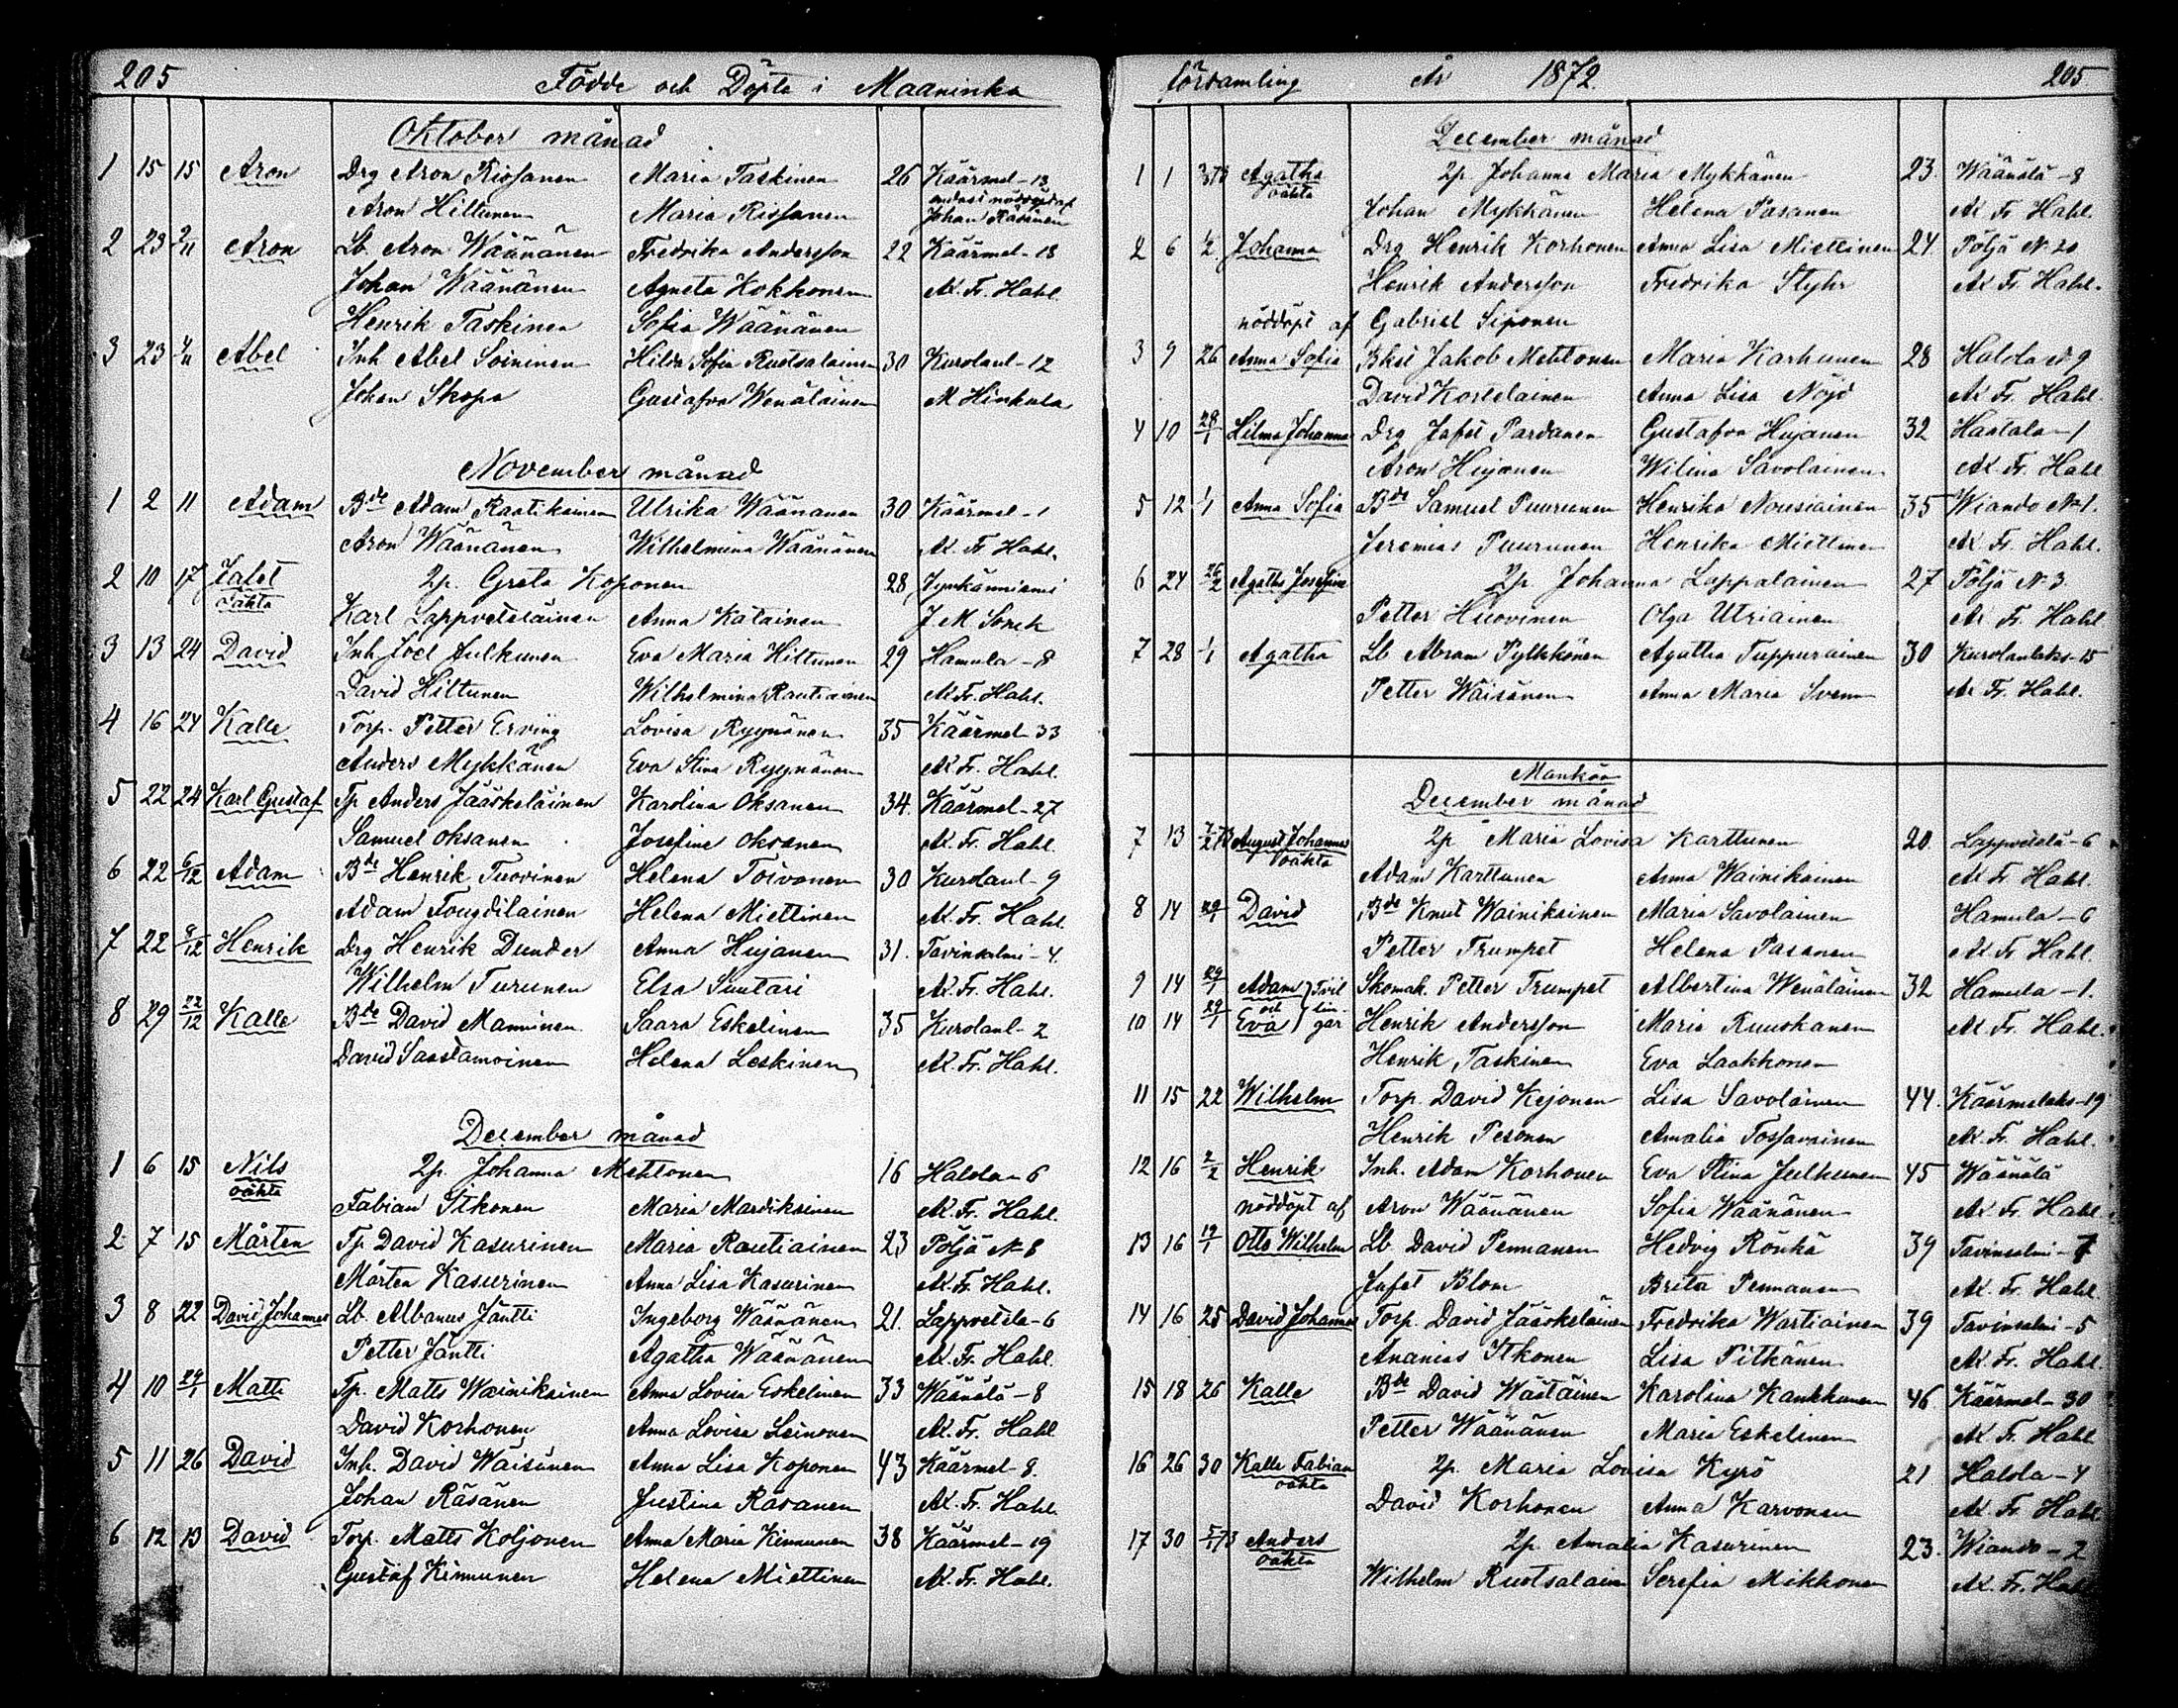 205 Födde och Döpta i Maaninka
Oktober månad
1 15 15 Aron Drg Aron Rissanen Maria Taskinen 26 Käärmel-13
endast nöddöpt af
Aron Hiltunen Maria Rissanen Johan Räsänen
2 23 3/11 Aron Lb. Aron Wäänänen Fredrika Andersson 22 Käärmel-18
Johan Wäänänen Agneta Kokkonen Ad. Fr. Hahl
Henrik Taskinen Sofia Wäänänen
3 23 4/11 Abel Inh Abel Soininen Hilda Sofia Ruotsalainen 30 Kurolanl-12
Johan Skopa Gustafva Wenäläinen M Hinkula
November månad
1 2 11 Adam Bde Adam Raatikainen Ulrika Wäänänen 30 Käärmel-1
Aron Wäänänen Wilhelmina Wäänänen Ad. Fr. Hahl.
2 10 17 Jafet 2p. Greta Koponen 28 Jynkänniemi
oäkta
Karl Lappveteläinen Anna Katainen J M Sonck
3 13 24 David Inh Joel Julkunen Eva Maria Hiltunen 29 Hamula-8
David Hiltunen Wilhelmina Rautiainen Ad. Fr. Hahl.
4 16 24 Kalle Torp. Petter Erving Lovisa Ryynänen 35 Käärmel-33
Anders Mykkänen Eva Stina Ryynänen Ad. Fr. Hahl.
5 22 24 Karl Gustaf Tp Anders Jääskeläinen Karolina Oksanen 34. Käärmel-27
Samuel Oksanen Josefine Oksanen Ad. Fr. Hahl
6 22 6/12 Adam Bde Henrik Tuovinen Helena Toivonen 30 Kurolanl-9
Adam Fougdilainen Helena Miettinen Ad. Fr. Hahl
7 22 8/12 Henrik Drg Henrik Dunder Anna Hujanen 31. Tavinsalmi-4.
Wilhelm Turunen Elsa Suutari Ad. Fr. Hahl.
8 29 22/12 Kalle Bde David Manninen Saara Eskelinen 35 Kurolanl-2
David Saastamoinen Helena Leskinen Ad. Fr. Hahl.
December månad
1 6 15 Nils 2p. Johanna Mehtonen 16 Halola-6
oäkta
Fabian Itkonen Maria Mardikainen Ad. Fr. Hahl.
2 7 15 Mårten Tp David Kasurinen Maria Rautiainen 23 Pöljä No 8
Mårten Kasurinen Anna Lisa Kasurinen Ad. Fr. Hahl.
3 8 22 David Johannes Lb. Albanus Jäntti Ingeborg Wäänänen 21. Lappvetelä-6
Petter Jäntti Agatha Wäänänen Ad. Fr. Hahl.
4 10 29/1 Matti Tp. Matts Wainikainen Anna Lovisa Eskelinen 33 Wäänälä-8
David Korhonen Anna Lovisa Leinonen Ad. Fr. Hahl
5 11 26 David Inh. David Wäisänen Anna Lisa Koponen 43 Käärmel-8.
Johan Räsänen Justina Räsänen Ad. Fr. Hahl.
6 12 13 David Torp. Matts Koljonen Anna Maria Kinnunen 38 Käärmel-19
Gustaf Kinnunen Helena Miettinen Ad. Fr. Hahl.
församling År 1872. 205
December månad
1 1 Agatha 2p. Johanna Maria Mykkänen 23. Wäänälä-8
oäkta
Johan Mykkänen Helena Pasanen Ad Fr. Hahl.
2 6 1/2 Johanna Drg Henrik Korhonen Anna Lisa Miettinen 24. Pöljä No 20
Henrik Andersson Fredrika Styhr Ad Fr. Hahl.
nöddöpt af Gabriel Siponen
3 9 26 Anna Sofia Bkst Jakob Mehtonen Maria Karhunen 28 Halola No 9
David Kostelainen Anna Lisa Nöjd Ad Fr. Hahl.
4 10 28/1 Hilma Johanna Drg Jafet Pardanen Gustafva Hujanen 32 Haatala-1
Aron Hujanen Wilina Savolainen Ad. Fr. Hahl
5 12 1/1 Anna Sofia Bde Samuel Puurunen Henrika Nousiainen 35 Wianda No 1.
Jeremias Puurunen Henrika Miettinen Ad Fr. Hahl.
6 24 26/2 Agatha Josefina 2p. Johanna Lappalainen 27 Pöljä No 3
Petter Huovinen Olga Utriainen Ad Fr. Hahl
7 28 1/1 Agatha Lb Abram Pylkkönen Agatha Tuppurainen 30 Kurolanlaks-15
Petter Wäisänen Anna Maria Svenn Ad Fr. Hahl.
Mankön
December månad
7 13 August Johannes 2p Maria Lovisa Karttunen 20. Lappvetelä-6
oäkta
Adam Karttunen Anna Wainikainen Ad Fr. Hahl.
8 14 29/1 David Bde Knut Wainikainen Maria Savolainen Hamula-6
Petter Trumpet Helena Pasanen Ad. Fr. Hahl.
9 14 29/1 Adam Tvil Skomak. Petter Trumpet Albertina Wenäläinen 32 Hamula-1.
och lin-
10 14 29/1 Eva gar Henrik Andersson Maria Ruuskanen Ad Fr. Hahl.
Henrik Taskinen Eva Laakkonen
11 15 22 Wilhelm Torp. David Kejonen Lisa Savolainen 44. Käärmelaks-19
Henrik Pesonen Amalia Tossavainen Ad. Fr. Hahl.
12 16 2/2 Henrik Inh. Adam Korhonen Eva Stina Julkunen 45 Wäänälä
nöddöpt af Aron Wäänänen Sofia Wäänänen Ad. Fr. Hahl
13 16 19/1 Otto Wilhelm Lb David Pennanen Hedvig Rönkä 39 Tavinsalmi-7
Jafet Blom Brita Pennanen Ad. Fr. Hahl
14 16 25 David Johannes Torp. David Jääskeläinen Fredrika Wartiainen 39 Tavinsalmi-5
Ananias Itkonen Lisa Pitkänen Ad. Fr. Hahl.
15 18 26 Kalle Bde David Wästäinen Karolina Kankkunen 46. Käärmel-30
Petter Wäänänen Maria Eskelinen Ad Fr. Hahl
16 26 30 Kalle Fabian 2p. Maria Lovisa Kyrö 21 Halola-4
oäkta
David Korhonen Anna Karvonen Ad. Fr. Hahl
17 30 Anders 2p. Amalia Kasurinen 23. Wianda-2
oäkta
Wilhelm Ruotsalain Serefia Mikkonen Ad. Fr. Hahl